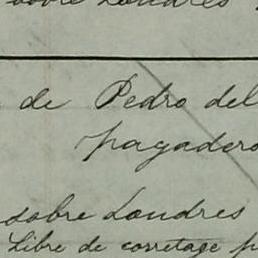 sobre Londres
de Pedro del
pagadero
sobre Londres
Libre de corretage p